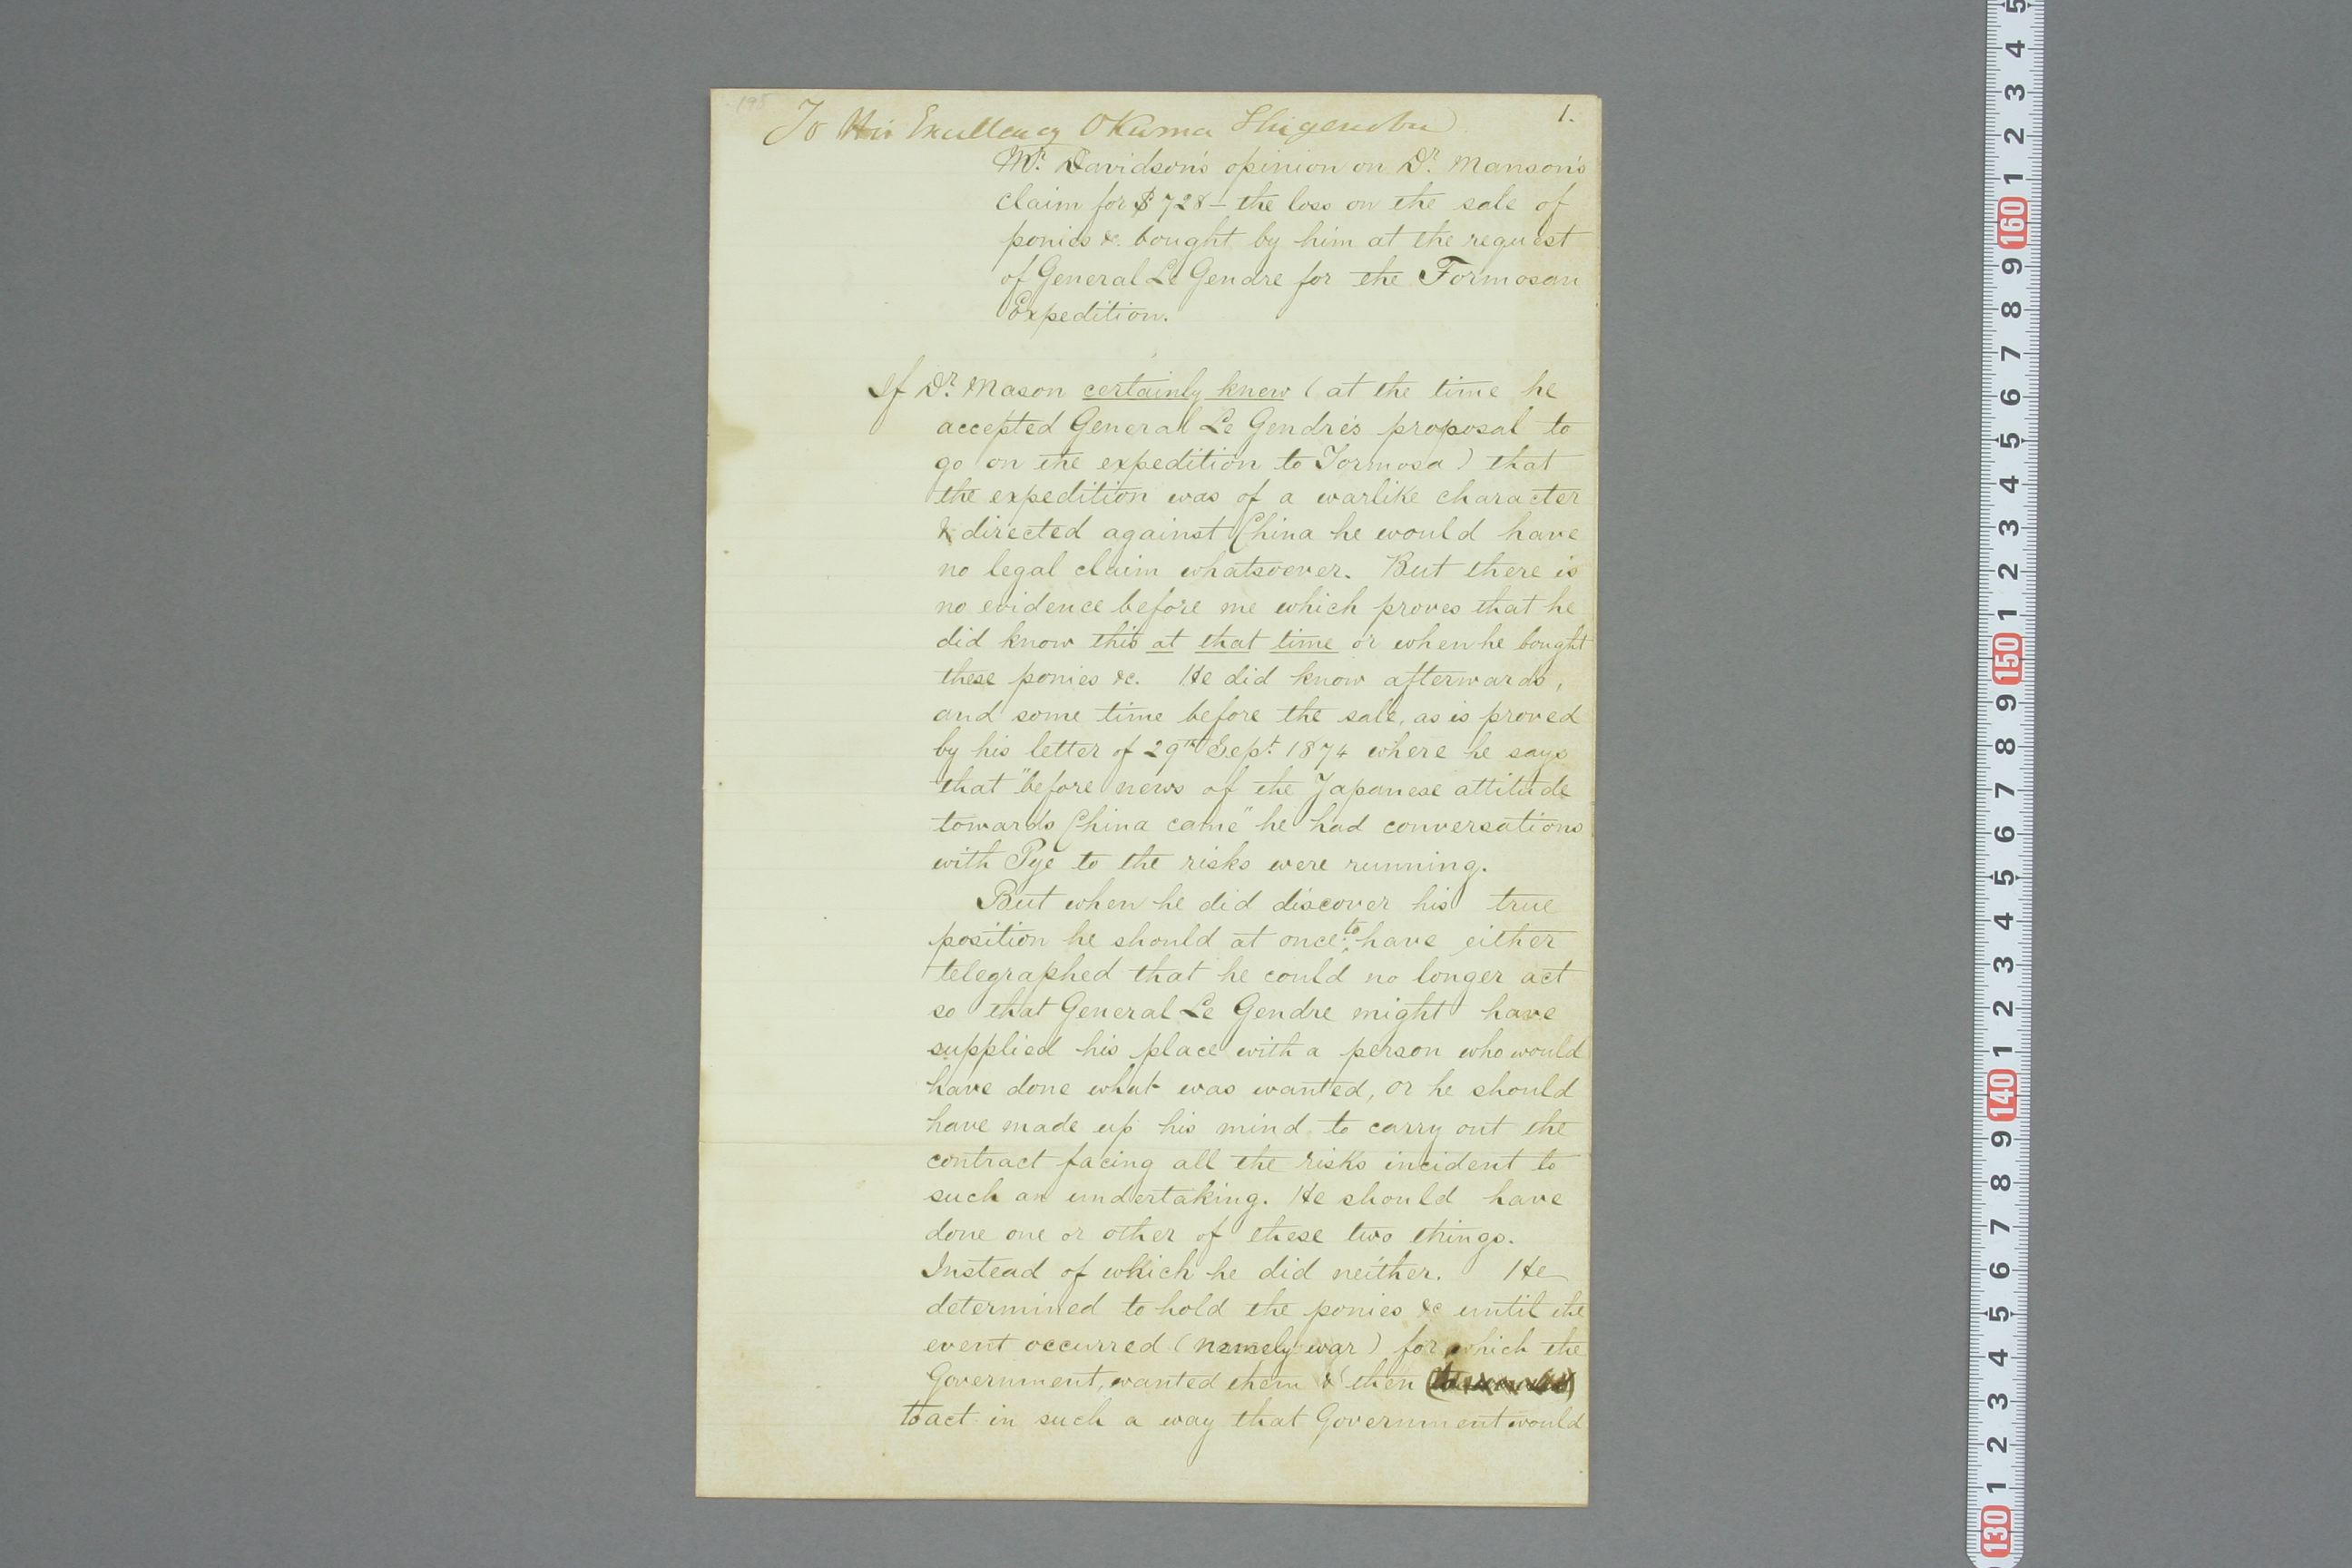 195
1.
To His Excellency Okuma Shigenobu
Mr. Davidson's opinion on Dr. Manson's
claim for $728 – the loss on the sale of
ponies &c. bought by him at the request
of General Le Gendre for the Formosan
Expedition.
If Dr. Mason certainly knew (at the time he
accepted General Le Gendre's proposal to
go on the expedition to Formosa) that
the expedition was of a warlike character
& directed against China he would have
no legal claim whatsoever. But there is
no evidence before me which proves that he
did know this at that time or when he bought
these ponies &c. He did know afterwards,
and some time before the sale, as is proved
by his letter of 29th Sept. 1874 where he says
that "before news of the Japanese attitude
towards China came" he had conversations
with Pye to the risks were running.
But when he did discover his true
position he should at once to have either
telegraphed that he could no longer act
so that General Le Gendre might have
supplied his place with a person who would
have done what was wanted, or he should
have made up his mind to carry out the
contract facing all the risks incident to
such an undertaking. He should have
done one or other of these two things.
Instead of which he did neither. He
determined to hold the ponies &c until the
event occurred (namely war) for which the
Government, wanted them & then
to act in such a way that Government would
5
4
3
2
1
160
9
8
7
6
5
4
3
2
1
150
9
8
7
6
5
4
3
2
1
140
9
8
7
6
5
4
3
2
1
130